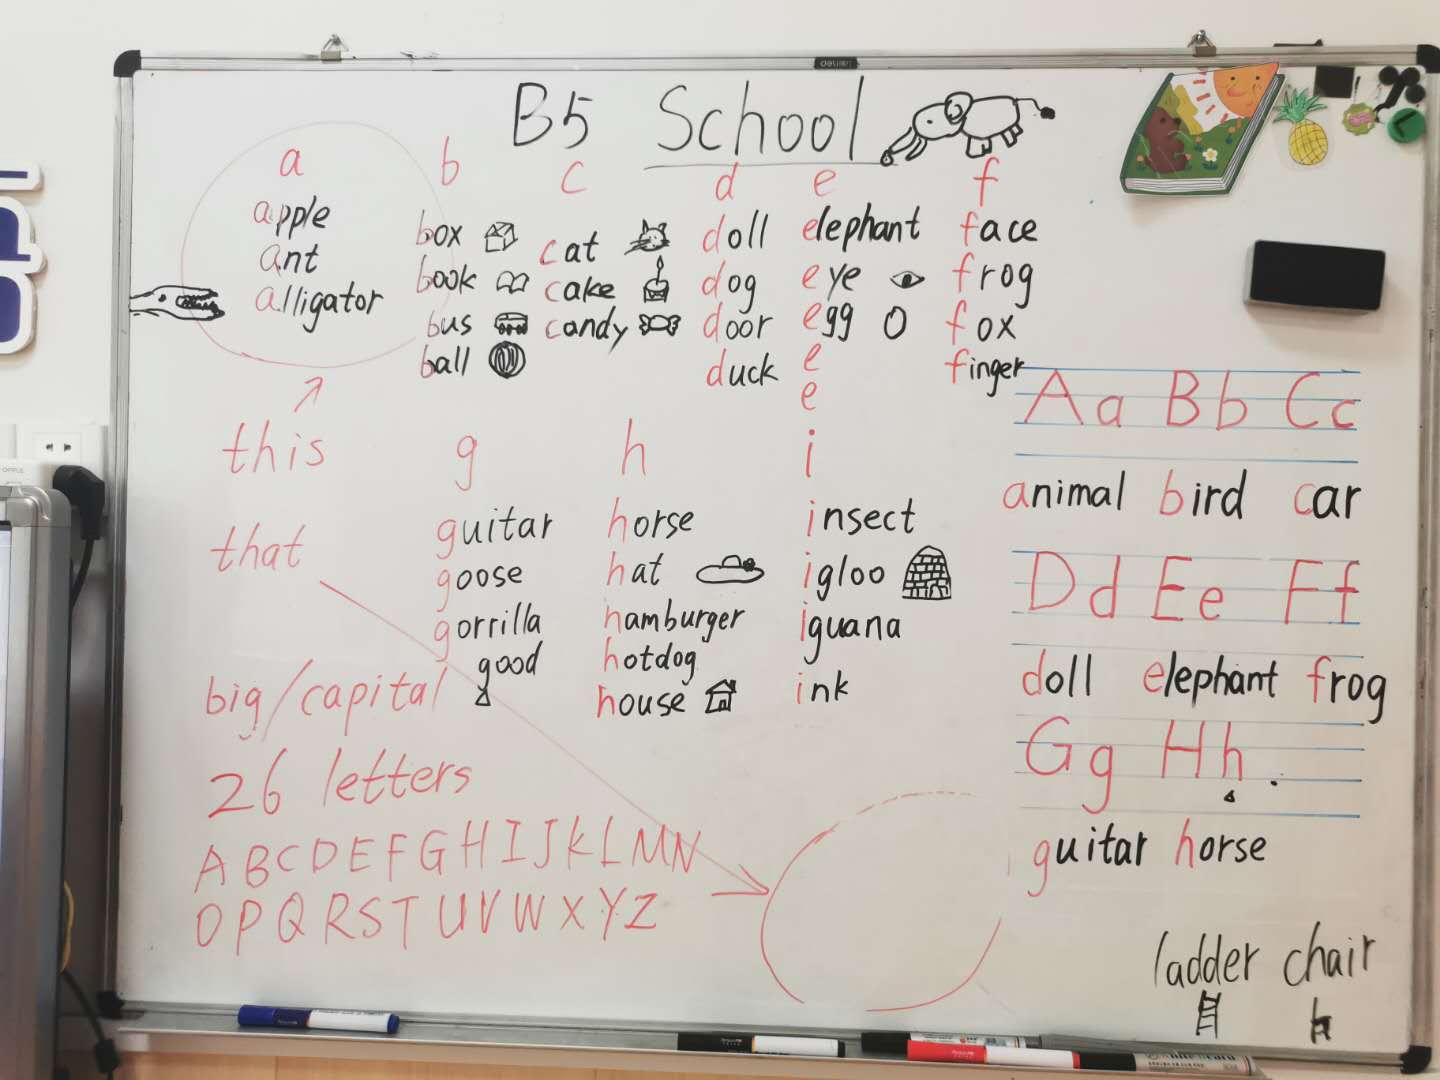 B5 School
a
apple
ant
alligator
b
box
book
bus
ball
c
cat
cake
candy
d
doll
dog
door
duck
e
elephant
eye
egg
e
e
f
face
frog
fox
finger
this
that
g
guitar
goose
gorrilla
good
h
horse
hat
hamburger
hotdog
house
i
insect
igloo
iguana
ink
big/capital
26 letters
A B C D E F G H I J K L M N
O P Q R S T U V W X Y Z
Aa Bb Cc
animal bird car
Dd Ee Ff
doll elephant frog
Gg Hh
guitar horse
ladder chair